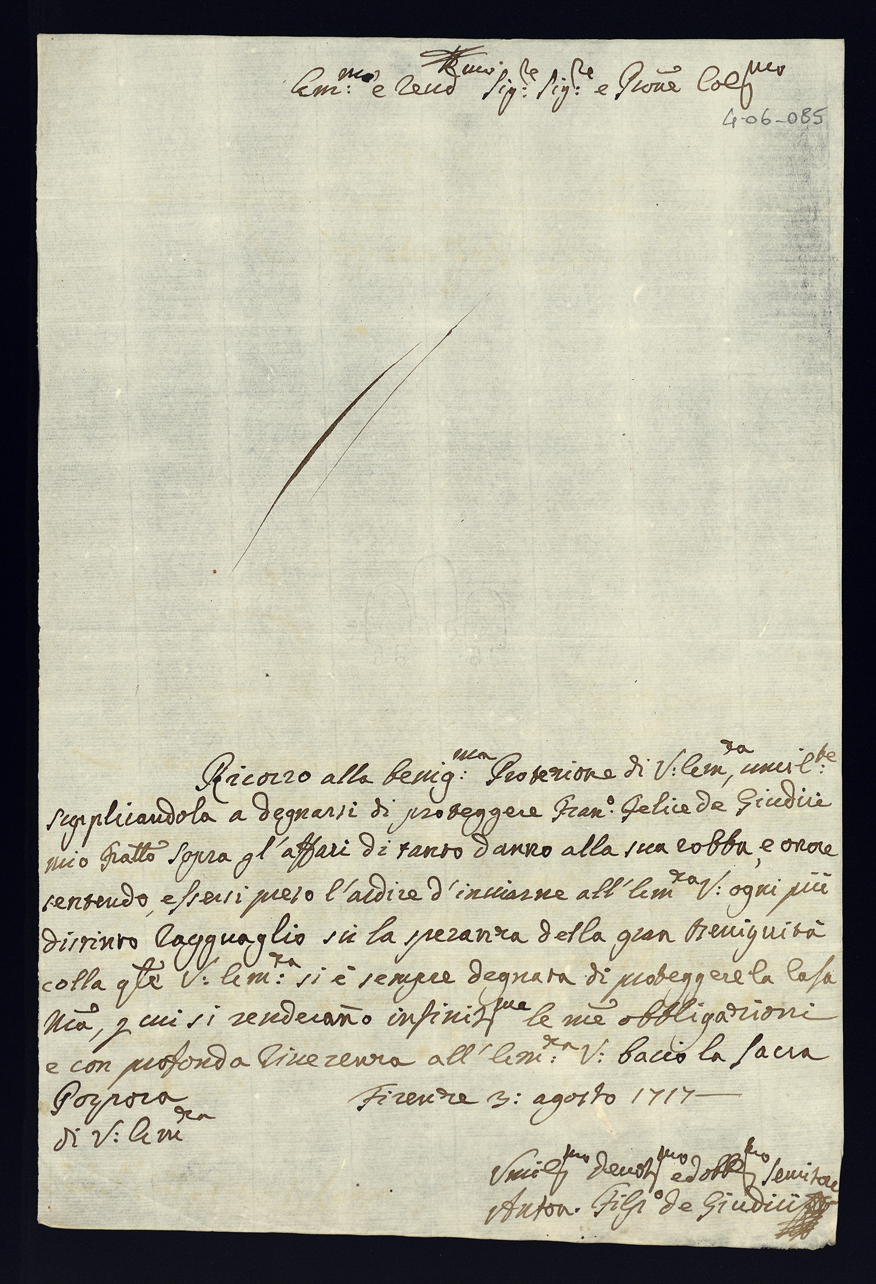 Em:mo e Reud Rmo: Sig:re Sig:re e Prone Colmo
4-06-085
Ricorro alla benig:ma Protezione di V: Emra, umil:te
supplicandola a degnarsi di proteggere Fran:o Felice de Giudici
mio Fratto sopra gl'affari di tanto danno alla sua robba, e onore
sentendo, essersi preso l'ardire d'inviarne all'Emra V: ogni più
distinto ragguaglio su la speranza della gran Benignità
colla qle V: Em:ra si è sempre degnata di proteggere la Casa
Nra, p cui si renderanno infinitme le me obbligazioni
e con profonda riverenza all'Em:ra V: bacio la Sacra
Porpora Firenze 3: agosto 1717
di V: Emra
Umilmo devotmo ed obbmo Servitore
Anton. Filipo de Giudici